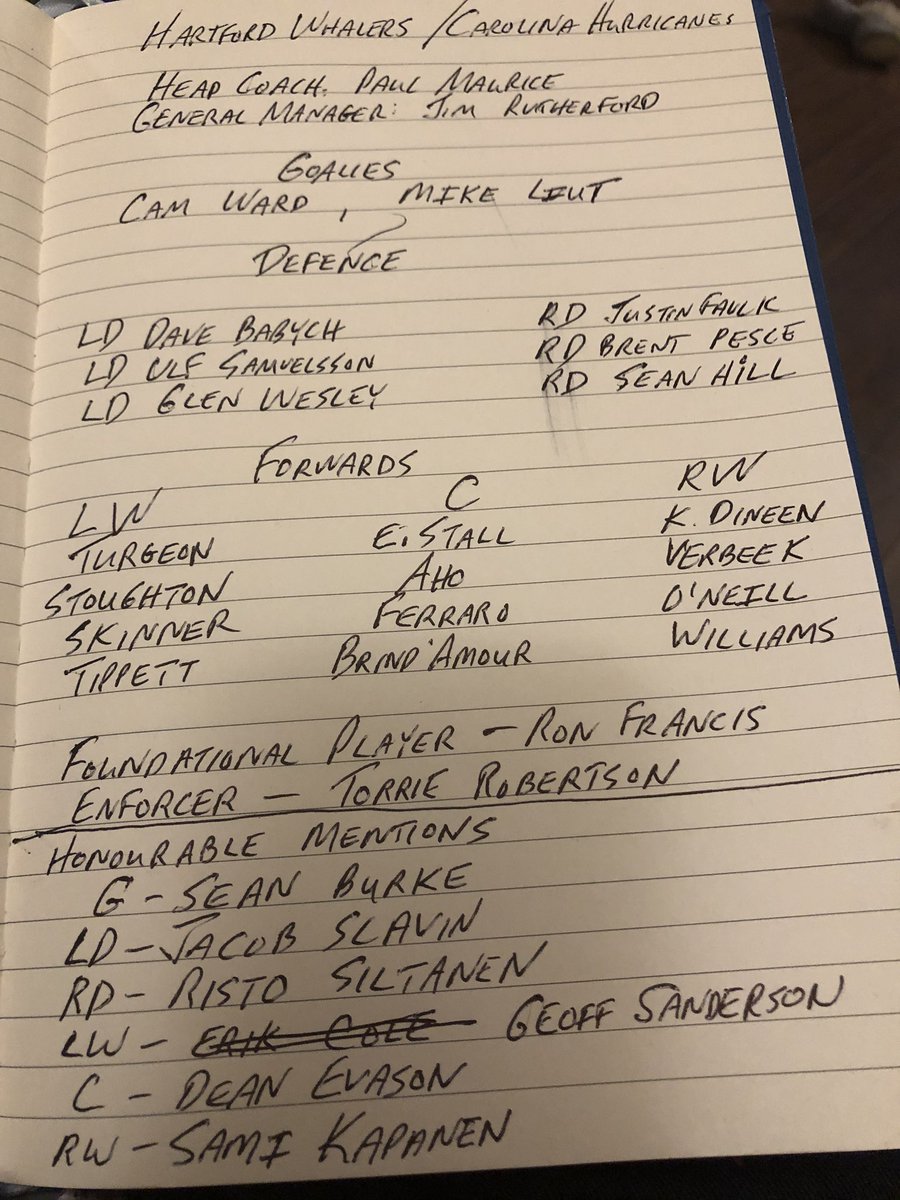 HARTFORD WHALERS / CAROLINA HURRICANES
HEAD COACH: PAUL MAURICE
GENERAL MANAGER: JIM RUTHERFORD
GOALIES
CAM WARD , MIKE LIUT
DEFENCE
LD DAVE BABYCH RD JUSTIN FAULK
LD ULF SAMUELSSON RD BRENT PESCE
LD GLEN WESLEY RD SEAN HILL
FORWARDS
LW C RW
TURGEON E. STALL K. DINEEN
STOUGHTON AHO VERBEEK
SKINNER FERRARO O'NEILL
TIPPETT BRIND'AMOUR WILLIAMS
FOUNDATIONAL PLAYER – RON FRANCIS
ENFORCER – TORRIE ROBERTSON
HONOURABLE MENTIONS
G – SEAN BURKE
LD – JACOB SLAVIN
RD – RISTO SILTANEN
LW – ERIK COLE GEOFF SANDERSON
C – DEAN EVASON
RW – SAMI KAPANEN